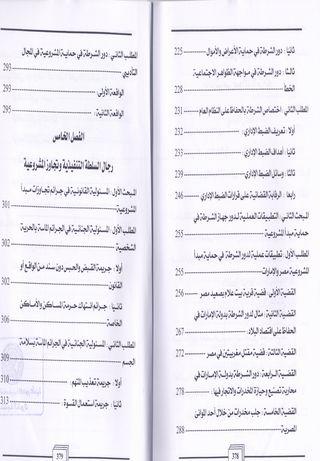 ثانيا : دور الشرطة في حماية الأعراض والأموال ........ 225
ثالثا : دور الشرطة في مواجهة الظواهر الاجتماعية
الخطر ........ 228
المطلب الثاني : اختصاص الشرطة بالحفاظ على النظام العام ........ 231
أولا : تعريف الضبط الإداري ........ 232
ثانيا : أهداف الضبط الإداري ........ 233
ثالثا : وسائل الضبط الإداري ........ 239
رابعا : الرقابة القضائية على قرارات الضبط الإداري ........ 246
المبحث الثاني : التطبيقات العملية لدور جهاز الشرطة في
حماية مبدأ المشروعية ........ 255
المطلب الأول : تطبيقات عملية لدور الشرطة في حماية مبدأ
المشروعية مصر والإمارات ........ 255
القضية الأولى : قضية قرية بيت علام بصعيد مصر ........ 256
القضية الثانية : مثال لدور الشرطة بدولة الإمارات في
الحفاظ على اقتصاد البلاد ........ 267
القضية الثالثة : قضية مقتل مغربيتين في مصر ........ 272
القضية الرابعة : دور الشرطة بدولة الإمارات في
محاربة تصنيع وحيازة المخدرات والاتجار فيها ........ 278
القضية الخامسة : جلب مخدرات من خلال أحد الموانئ
المصرية ........ 288
378
المطلب الثاني : دور الشرطة في حماية المشروعية في المجال
التأديبي ........ 293
الواقعة الأولى : ........ 293
الواقعة الثانية : ........ 295
الفصل الخامس
رجال السلطة التنفيذية وتجاوز المشروعية
المبحث الأول : المسئولية القانونية في جرائم تجاوزات مبدأ
المشروعية ........ 301
المطلب الأول : المسئولية الجنائية في الجرائم الماسة بالحرية
الشخصية ........ 302
أولا : جريمة القبض والحبس دون سند من الواقع أو
القانون ........ 302
ثانيا : جرائم انتهاك حرمة المساكن والأماكن
الخاصة ........ 306
المطلب الثاني : المسئولية الجنائية في الجرائم الماسة بسلامة
الجسم ........ 309
أولا : جريمة تعذيب المتهم ........ 310
ثانيا : جريمة استعمال القسوة ........ 313
379